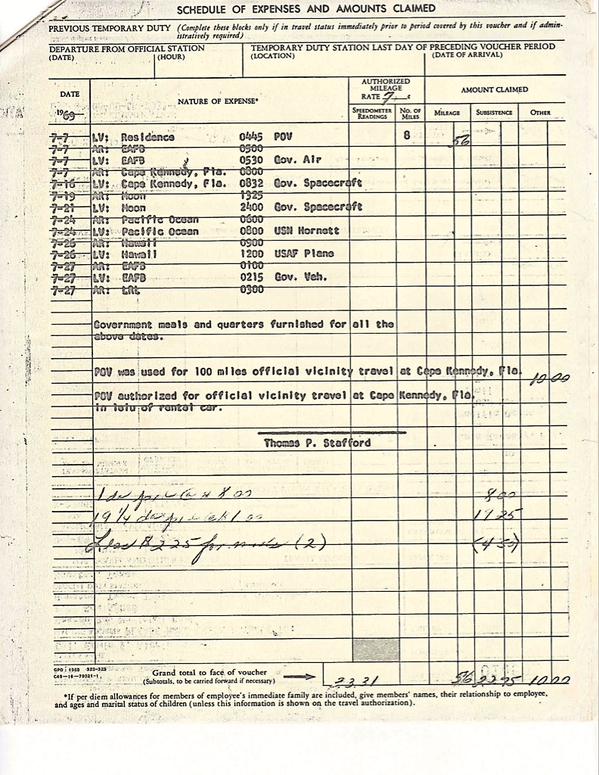 SCHEDULE OF EXPENSES AND AMOUNTS CLAIMED
PREVIOUS TEMPORARY DUTY (Complete these blocks only if in travel status immediately prior to period covered by this voucher and if administratively required)
DEPARTURE FROM OFFICIAL STATION
(DATE) (HOUR)
TEMPORARY DUTY STATION LAST DAY OF PRECEDING VOUCHER PERIOD
(LOCATION) (DATE OF ARRIVAL)
DATE
1969
NATURE OF EXPENSE*
AUTHORIZED
MILEAGE
RATE 7 ¢
SPEEDOMETER READINGS
NO. OF MILES
AMOUNT CLAIMED
MILEAGE SUBSISTENCE OTHER
7-7 LV: Residence 0445 POV 8 56
7-7 AR: EAFB 0500
7-7 LV: EAFB 0530 Gov. Air
7-7 AR: Cape Kennedy, Fla. 0800
7-16 LV: Cape Kennedy, Fla. 0832 Gov. Spacecraft
7-19 AR: Moon 1325
7-21 LV: Moon 2400 Gov. Spacecraft
7-24 AR: Pacific Ocean 0600
7-24 LV: Pacific Ocean 0800 USN Hornett
7-26 AR: Hawaii 0900
7-26 LV: Hawaii 1200 USAF Plane
7-27 AR: EAFB 0100
7-27 LV: EAFB 0215 Gov. Veh.
7-27 AR: 0300
Government meals and quarters furnished for all the
above dates.
POV was used for 100 miles official vicinity travel at Cape Kennedy, Fla. 10.00
POV authorized for official vicinity travel at Cape Kennedy, Fla.
in leiu of rental car.
Thomas P. Stafford
1 8.00 8.00
19 1/4 1.00 19.25
Less $2.25 for meals (2) (4.50)
GPO : 1968
Grand total to face of voucher
(Subtotals, to be carried forward if necessary)
33.31 56 22.75 10.00
*If per diem allowances for members of employee's immediate family are included, give members' names, their relationship to employee,
and ages and marital status of children (unless this information is shown on the travel authorization).